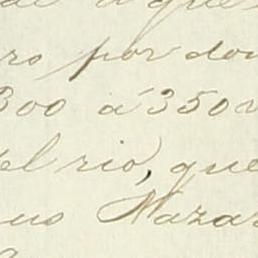 de a que
ro por don
300 á 350
el rio, que
uo Nazar